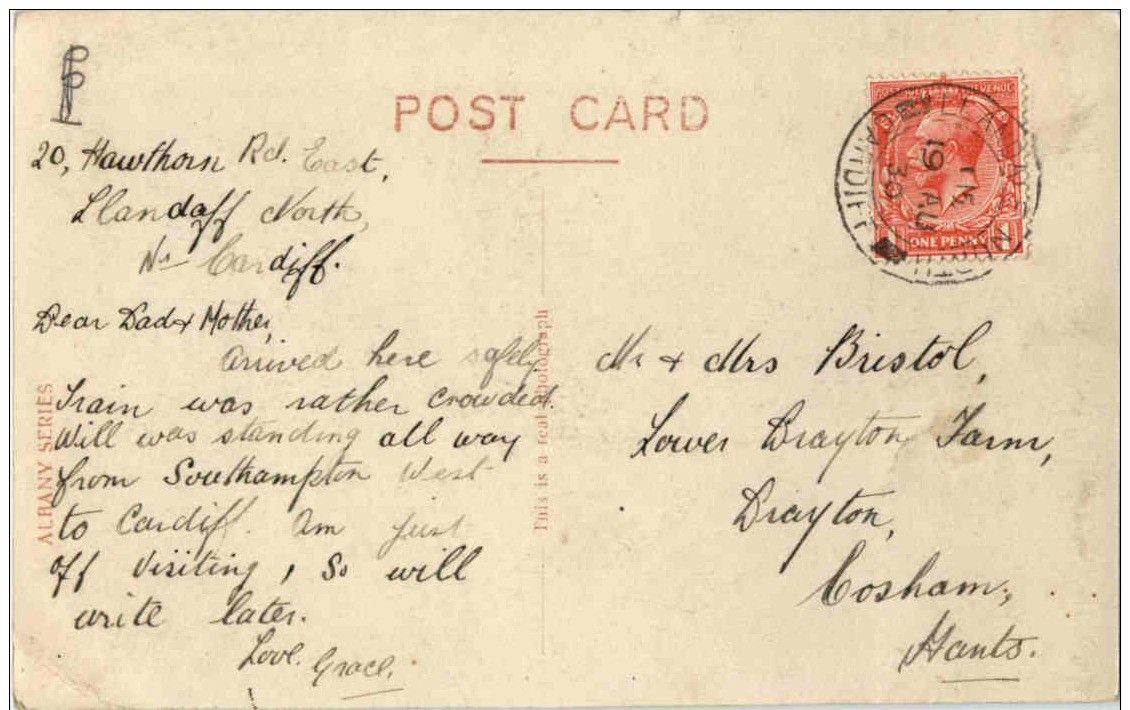 POST CARD
20, Hawthorn Rd. East,
Llandaff North,
Nr Cardiff.
Dear Dad & Mother,
Arrived here safely
Train was rather crowded.
Will was standing all way
from Southampton West
to Cardiff. Am just
off visiting, So will
write later.
Love. Grace.
ALBANY SERIES
This is a real photograph
Mr & Mrs Bristol,
Lower Drayton Farm,
Drayton,
Cosham,
Hants.
ONE PENNY
CARDIFF
19 AU
30